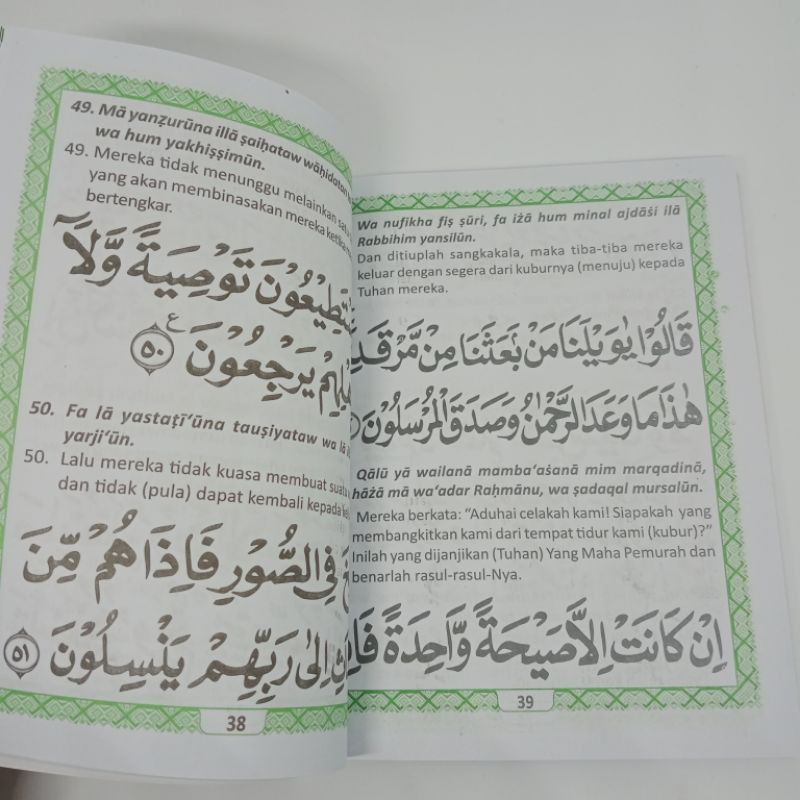 49. Mā yanẓurūna illā ṣaiḥataw wāḥidatan
wa hum yakhiṣṣimūn.
49. Mereka tidak menunggu melainkan
yang akan membinasakan mereka ketika
bertengkar.
تَوْصِيَةً وَّلَآ
يَرْجِعُوْنَ ࣖ ٥٠
50. Fa lā yastaṭī‘ūna tauṣiyataw wa lā
yarji‘ūn.
50. Lalu mereka tidak kuasa membuat
dan tidak (pula) dapat kembali kepada
فِى الصُّوْرِ فَاِذَا هُمْ مِّنَ
اِلٰى رَبِّهِمْ يَنْسِلُوْنَ ٥١
38
Wa nufikha fiṣ ṣūri, fa iżā hum minal ajdāṡi ilā
Rabbihim yansilūn.
Dan ditiuplah sangkakala, maka tiba-tiba mereka
keluar dengan segera dari kuburnya (menuju) kepada
Tuhan mereka.
قَالُوْا يٰوَيْلَنَا مَنْۢ بَعَثَنَا مِنْ
هٰذَا مَا وَعَدَ الرَّحْمٰنُ وَصَدَقَ الْمُرْسَلُوْنَ
Qālū yā wailanā mamba‘aṡanā mim marqadinā,
hāżā mā wa‘adar Raḥmānu, wa ṣadaqal mursalūn.
Mereka berkata: “Aduhai celakah kami! Siapakah yang
membangkitkan kami dari tempat tidur kami (kubur)?”
Inilah yang dijanjikan (Tuhan) Yang Maha Pemurah dan
benarlah rasul-rasul-Nya.
اِنْ كَانَتْ اِلَّا صَيْحَةً وَّاحِدَةً
39